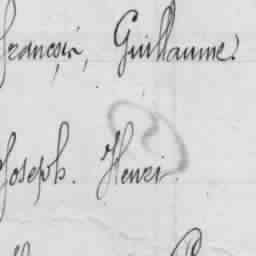 françois, Guillaume.
Joseph. Henri.